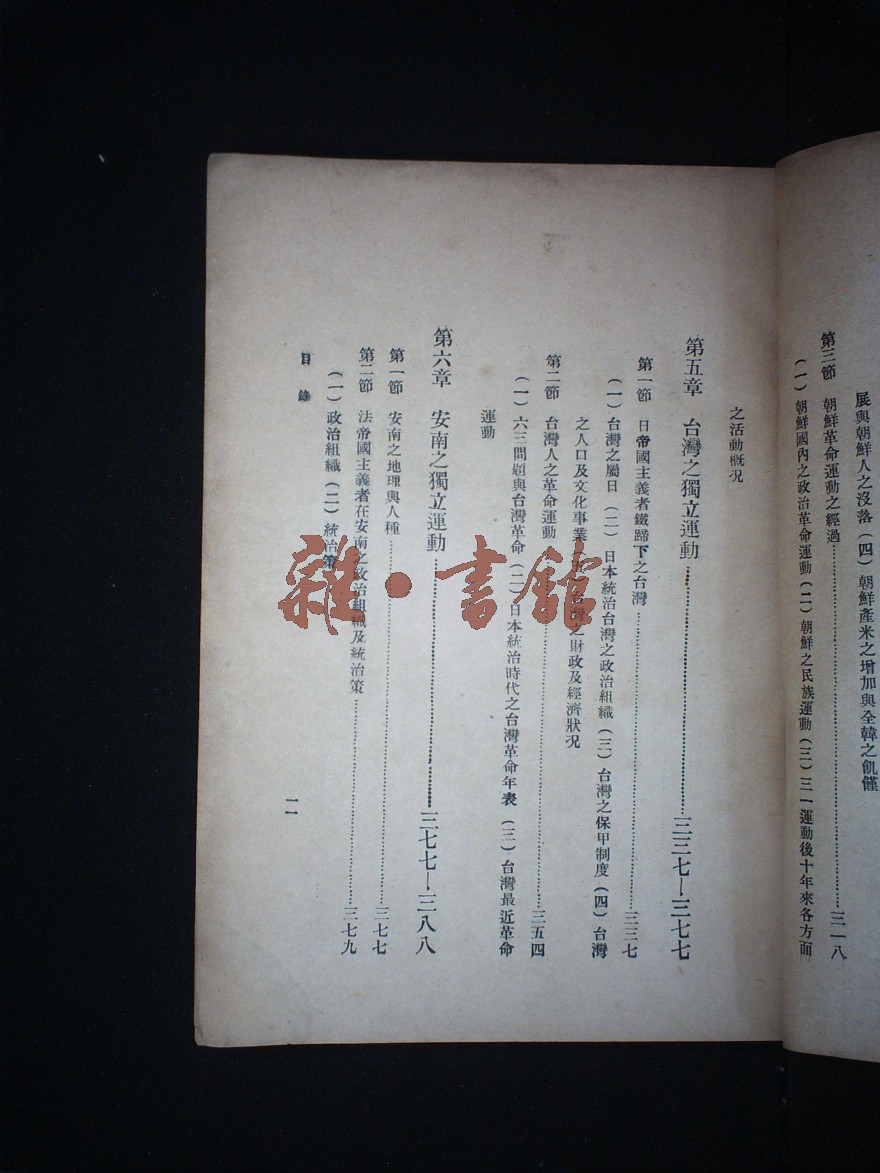 展與朝鮮人之沒落（四）朝鮮產米之增加與全韓之飢饉
第三節　朝鮮革命運動之經過……三一八
（一）朝鮮國內之政治革命運動（二）朝鮮之民族運動（三）三一運動後十年來各方面
之活動概況
第五章　台灣之獨立運動……三三七—三七七
第一節　日帝國主義者鐵蹄下之台灣……三三七
（一）台灣之屬日（二）日本統治台灣之政治組織（三）台灣之保甲制度（四）台灣
之人口及文化事業（五）台灣之財政及經濟狀況
第二節　台灣人之革命運動……三五四
（一）六三問題與台灣革命（二）日本統治時代之台灣革命年表（三）台灣最近革命
運動
第六章　安南之獨立運動……三七七—三八八
第一節　安南之地理與人種……三七七
第二節　法帝國主義者在安南之政治組織及統治策……三七九
（一）政治組織（二）統治策
目錄
一一
雜·書館